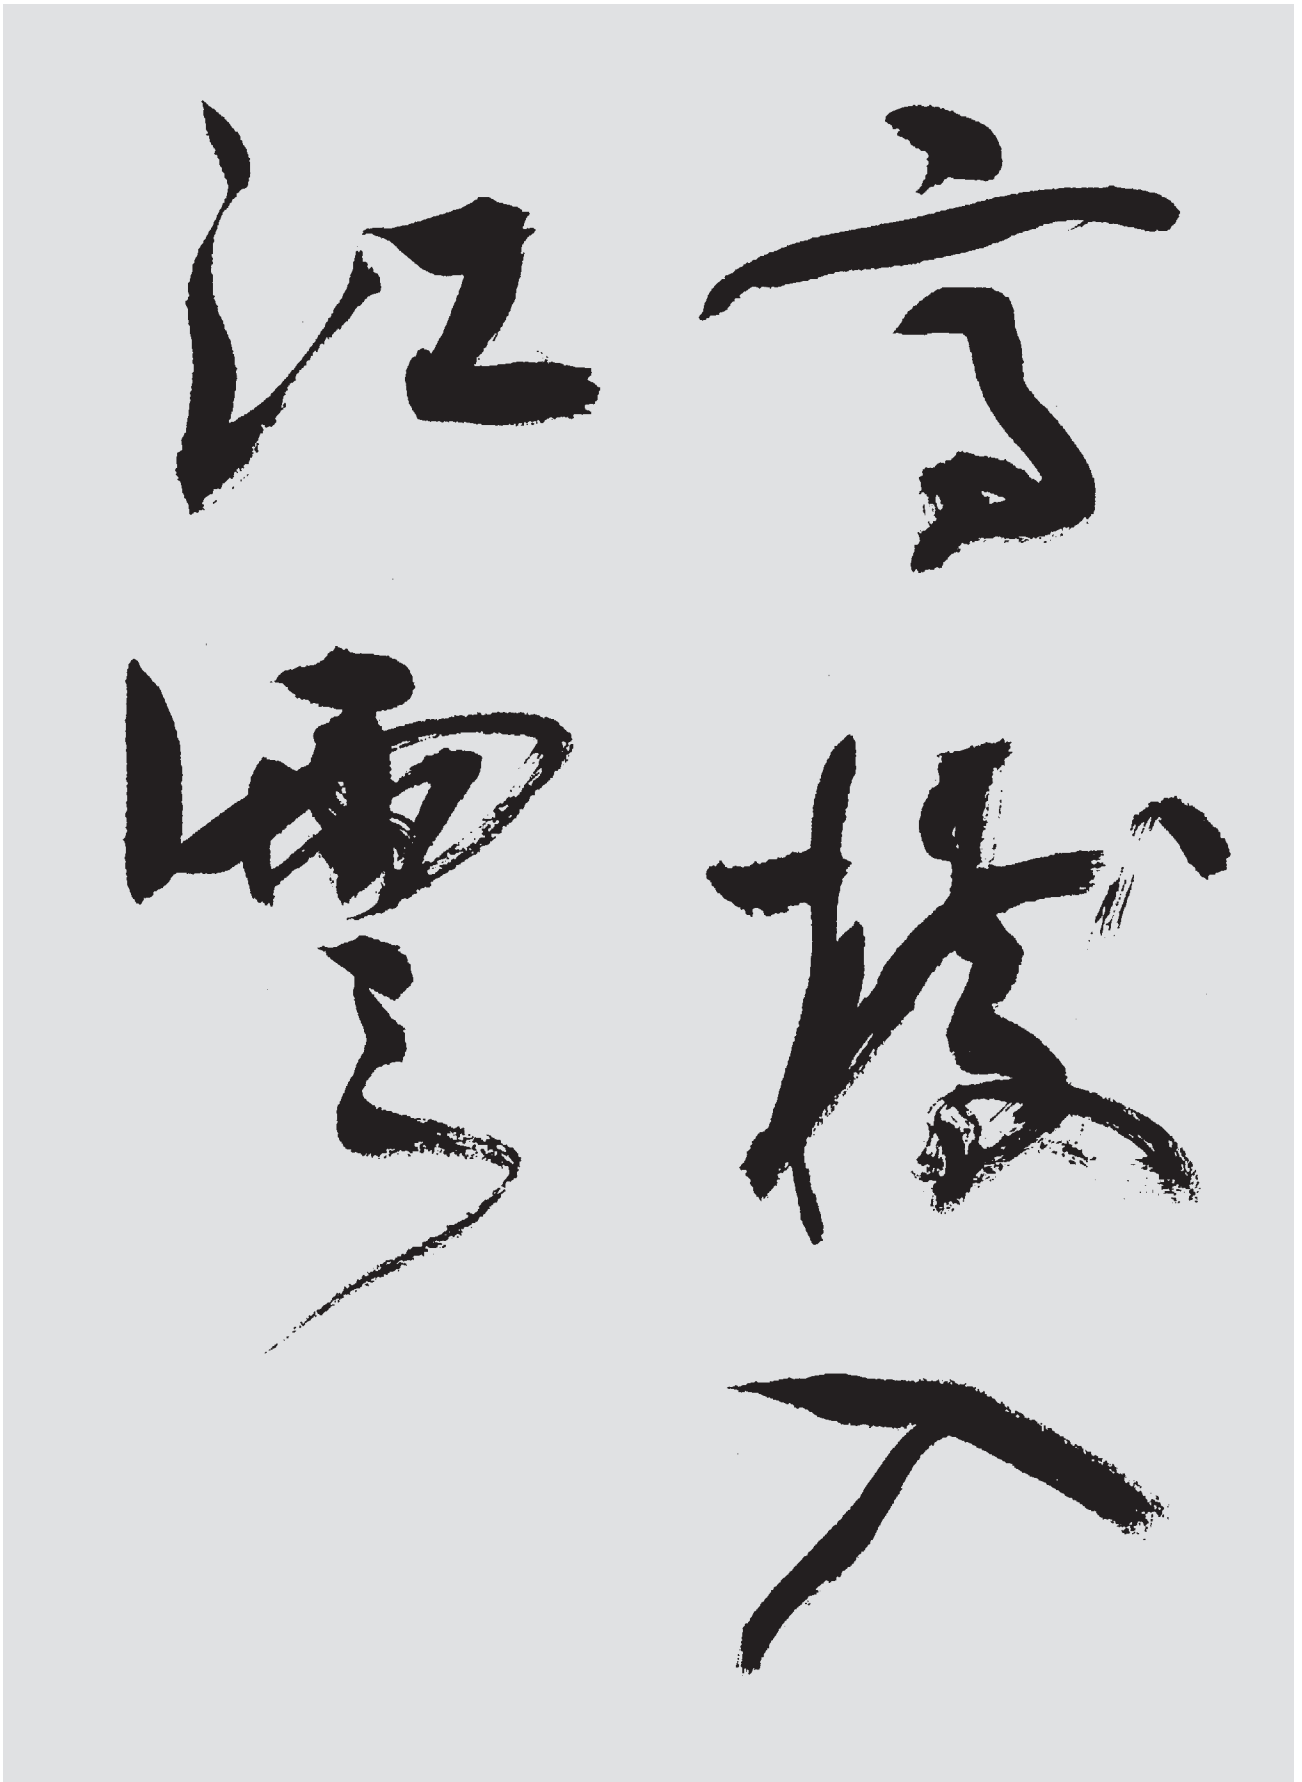 高入
江雲